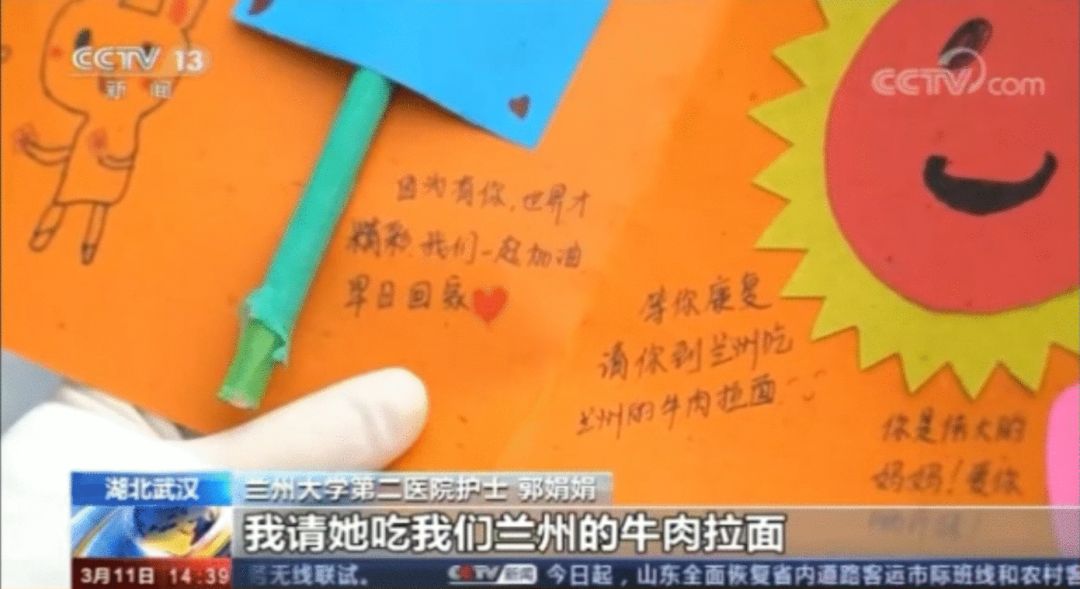 CCTV 13
新闻
CCTV.com
因为有你,世界才
精彩.我们一起加油
早日回家
等你康复
请你到兰州吃
兰州的牛肉拉面
你是伟大的
妈妈!爱你
湖北武汉
兰州大学第二医院护士 郭娟娟
我请她吃我们兰州的牛肉拉面
3月11日 14:39
无线联试。
CCTV 新闻
今日起，山东全面恢复省内道路客运市际班线和农村客